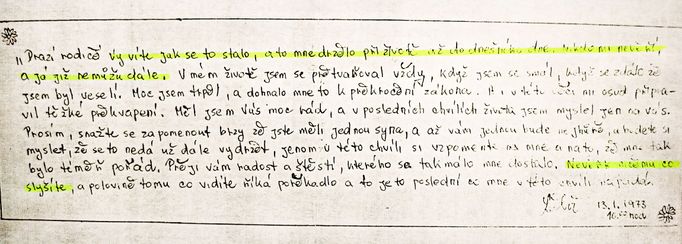 "Drazí rodičě vy víte jak se to stalo, a to mne drželo při životě až do dnešního dne. nikdo mi nevěří,
a já již nemůžu dále. V mém životě jsem se přetvařoval vždy, když jsem se smál, když se zdálo že
jsem byl veselí. Moc jsem trpěl, a dohnalo mne to k překročení zákona. A i v této věci mi osud připra-
vil těžké překvapení. Měl jsem Vás moc rád, a v posledních chvílích života jsem myslel jen na vás.
Prosím, snažte se zapomenout brzy že jste měli jednou syna, a až vám jednou bude nejhůře, a budete si
myslet, že se to nedá už dále vydržet, jenom v této chvíli si vzpomente na mne a na to, že mne tak
bylo téměř pořád. Přeji vám radost a štěstí, kterého se tak málo mne dostalo. Nevěřte ničemu co
slyšíte, a polovině tomu co vidíte říká pořekadlo a to je to poslední co mne v této chvíli napadá.
13. 1. 1973
hod